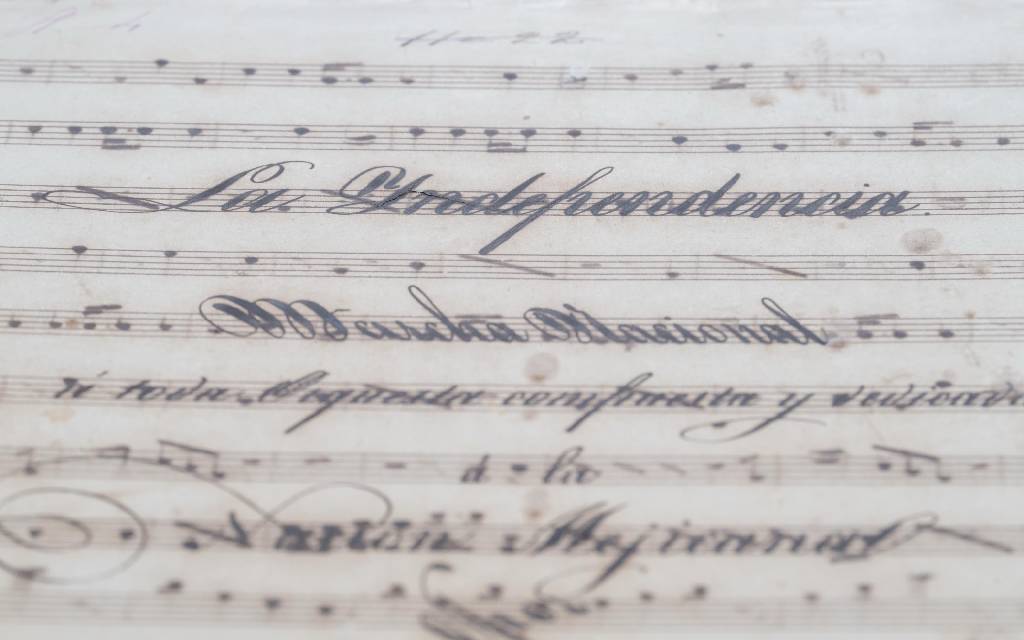 La Yndependencia.
Marcha Nacional
á toda Orquesta compuesta y dedicada
á la
Nación Mejicana